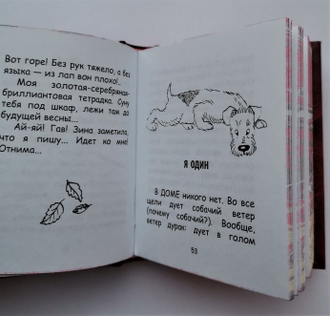 Вот горе! Без рук тяжело, а без
языка — из лап вон плохо!..
Моя золотая-серебряная-
бриллиантовая тетрадка. Суну
тебя под шкаф, лежи там до
будущей весны...
Ай-яй! Гав! Зина заметила,
что я пишу... Идет ко мне!
Отнима...
Я ОДИН
В ДОМЕ никого нет. Во все
щели дует собачий ветер
(почему собачий?). Вообще,
ветер дурак: дует в голом
53